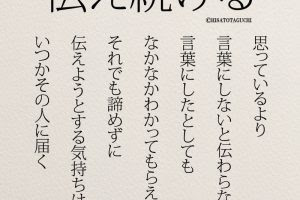 伝え続ける
©HISATOTAGUCHI
思っているより
言葉にしないと伝わらな
言葉にしたとしても
なかなかわかってもらえ
それでも諦めずに
伝えようとする気持ちは
いつかその人に届く